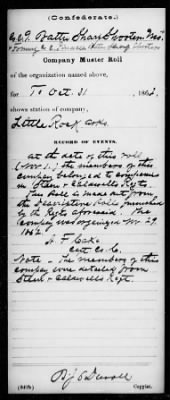 (Confederate.)
Co. C. 1 Battn Sharp Shooters Mo.
Company Muster Roll
of the organization named above,
for To Oct. 31 1862.
shown station of company,
Little Rock Arks.
RECORD OF EVENTS.
At the date of this roll
the members of this
company belonged to companies
in Steen & Caldwells Regts.
This roll is made out from
the Descriptive Rolls furnished
by the Regts aforesaid. The
Company was organized Nov 29
1862.
Note - The members of this
company were detailed from
Steen & Caldwells Regt.
Copyist.